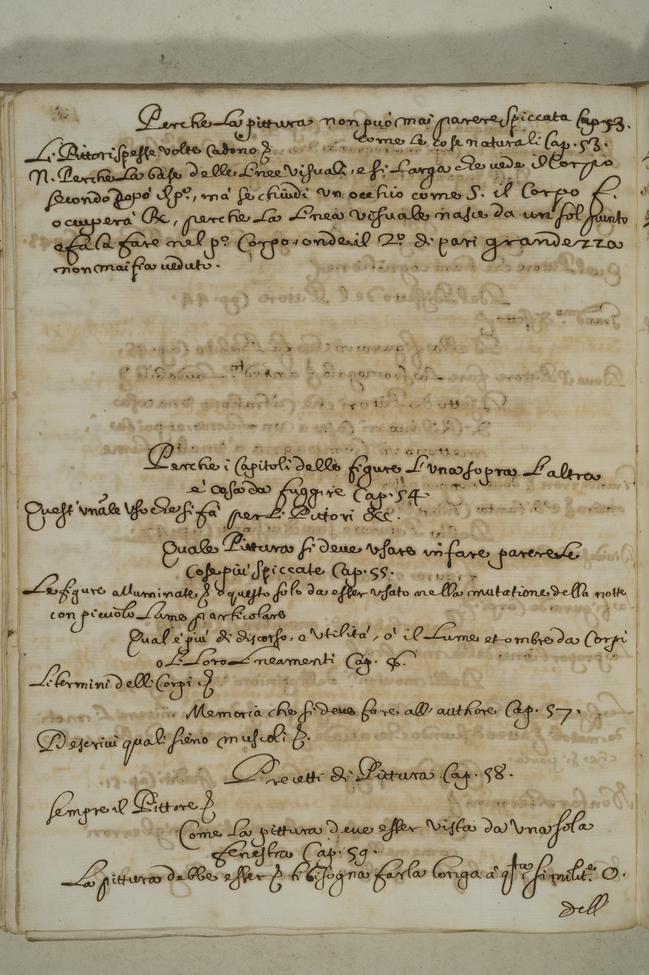 Perche La pittura non può mai parere spiccata Cap. 53.
come le cose naturali Cap. 53.
Li Pittori spesse volte cadono &
N. Perche La base delle Linee visuali, e si Larga che vede il Corpo
secondo dopò il pº, mà se chiudi un occhio come S. il Corpo f.
ocuperà R, perche La Linea visuale nasce da un sol punto
e fà la fare nel pº Corpo, onde il 2º di pari grandezza
non mai fia veduto.
Perche i Capitoli delle figure L'una sopra L'altra
è cosa da fuggire Cap. 54
Quest' uso che si fà per Li Pittori &c.
Quale Pittura si deve usare in fare parere Le
Cose più spiccate Cap. 55.
Le figure alluminate & questo solo da esser usato nella mutatione della notte
con picciolo Lume particolare
Qual è più di discorso, o Utilità, ò il Lume et ombre da Corpi
o Li Loro Lineamenti Cap. 56.
Li termini delli Corpi &
Memoria che si deve fare all' authore Cap. 57.
Descrivi quali sieno muscoli &.
Precetti di Pittura Cap. 58.
sempre il Pittore &
Come La pittura deve esser vista da una sola
fenestra Cap. 59.
La pittura debbe esser & ti bisogna farla longa à similit.e O.
dell